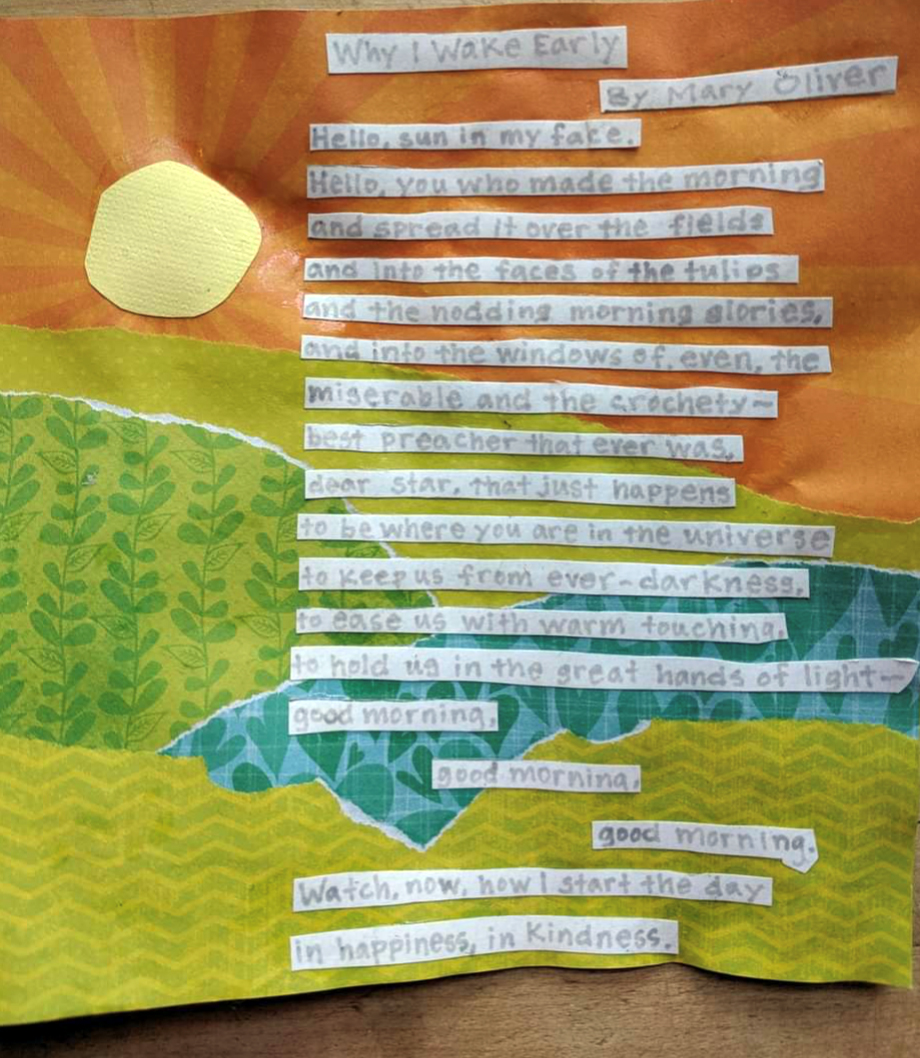 Why I Wake Early
By Mary Oliver
Hello, sun in my face.
Hello, you who made the morning
and spread it over the fields
and into the faces of the tulips
and the nodding morning glories,
and into the windows of, even, the
miserable and the crochety–
best preacher that ever was,
dear star, that just happens
to be where you are in the universe
to keep us from ever-darkness,
to ease us with warm touching,
to hold us in the great hands of light–
good morning,
good morning,
good morning.
Watch, now, how I start the day
in happiness, in kindness.